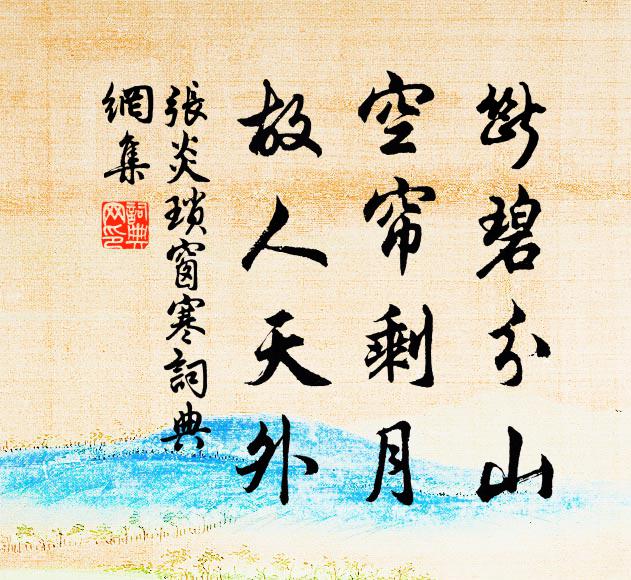 斷碧分山
空帘剩月
故人天外
張炎瑣窗寒詞典
網集
詞典網印